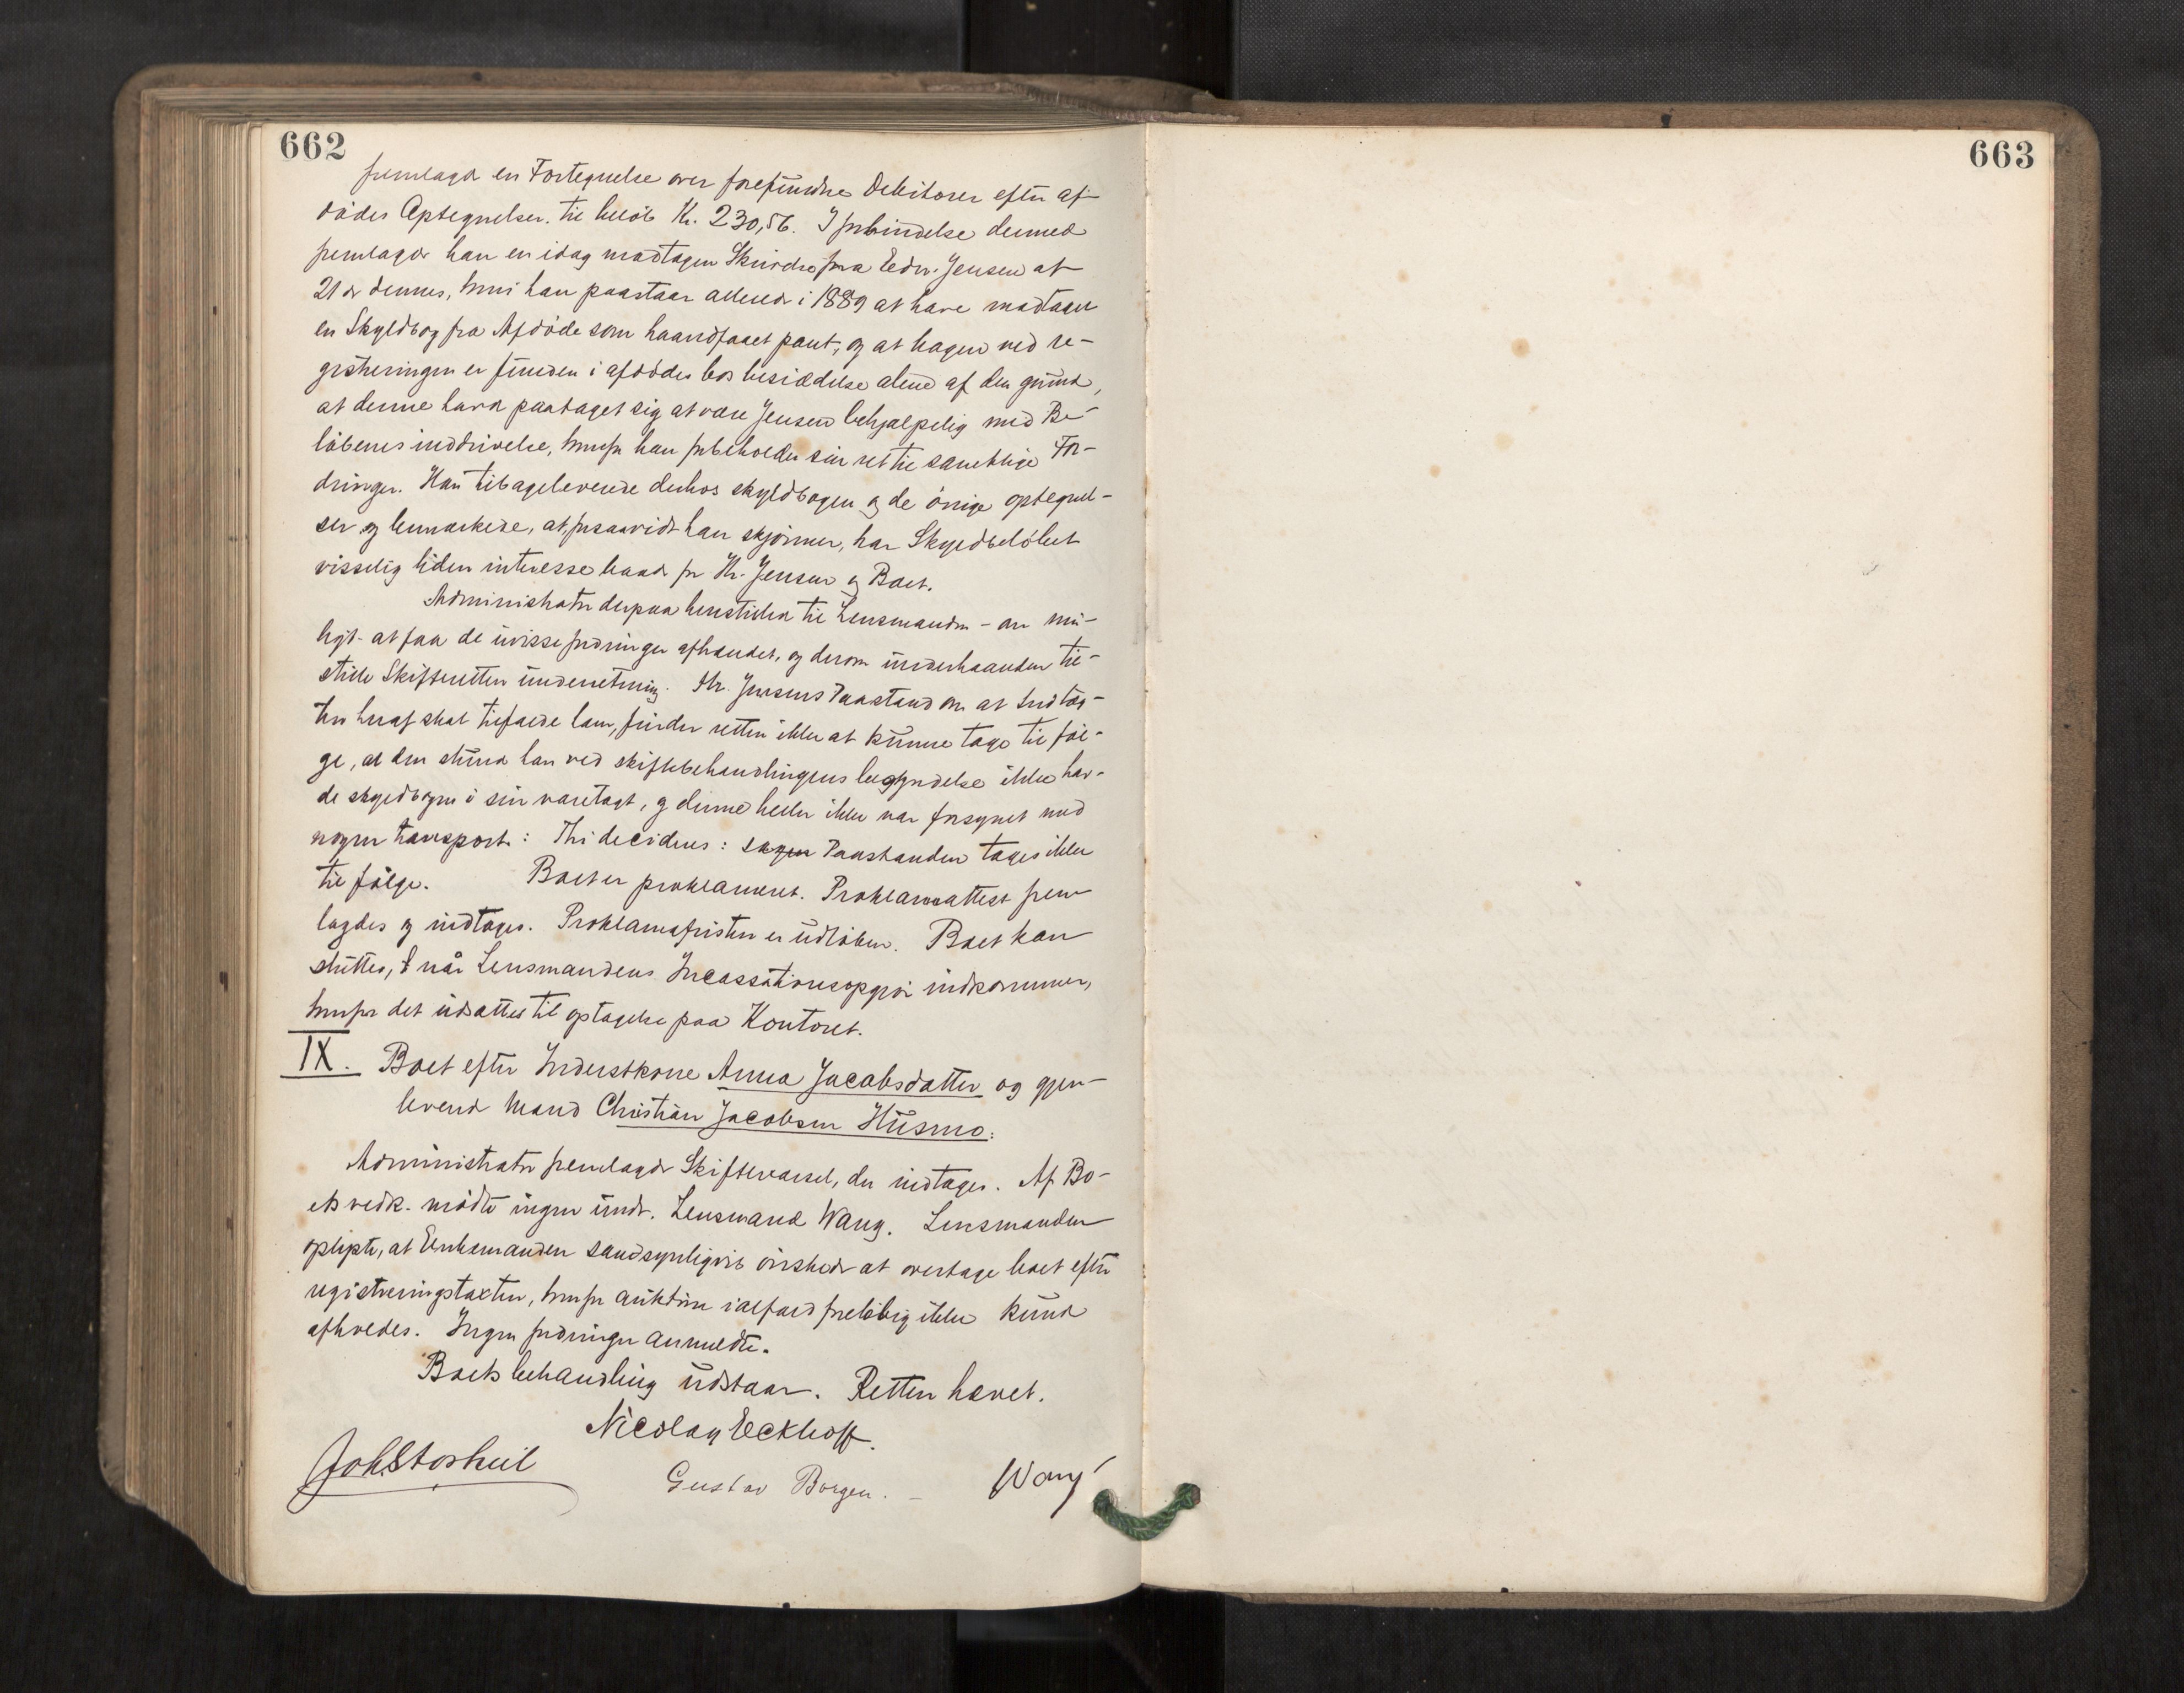 662
663
fremlagde en Fortegnelse over forefundne Debitorer efter af-
dødes Optegnelser. til beløb Kr. 230,56. I forbindelse dermed
fremlagde han en idag modtagen Skrivelse fra Edv. Jensen af
21de dennes, hvori han paastaar allerede i 1889 at have modtaget
en Skyldbog fra Afdøde som haandfaaet pant, og at bogen ved re-
gistreringen er funden i afdødes bos besiddelse alene af den grund,
at denne havde paataget sig at være Jensen behjælpelig med Be-
løbenes inddrivelse, hvorfor han forbeholder sin ret til samtlige For-
dringer. Han tilbageleverede derhos skyldbogen og de øvrige optegnel-
ser og bemærkede, at forsaavidt han skjønner, har Skyldbeløbet
visselig liden interesse baade for Hr. Jensen og Boet.
Administrator derpaa henstillede til Lensmanden - om mu-
ligt - at faa de uvisse fordringer afhændet, og derom underhaanden til-
stille Skifteretten underretning. Hr. Jensens Paastand om at Indtæg-
ten heraf skal tilfalde ham, finder retten ikke at kunne tage til føl-
ge, al den stund han ved skiftebehandlingens begyndelse ikke hav-
de skyldbogen i sin varetægt, og denne heller ikke var forsynet med
nogen transport: Thi decideres: sagen Paastanden tages ikke
til følge. Boet er proklameret. Proklamaattest frem-
lagdes og indtages. Proklamafristen er udløben. Boet kan
sluttes, når Lensmandens Incassationsopgjør indkommer,
hvorfor det udsattes til optagelse paa Kontoret.
IX. Boet efter Inderstkone Anna Jacobsdatter og gjen-
levende Mand Christian Jacobsen Husmo:
Administrator fremlagde Skiftevarsel, der indtages. Af Bo-
ets vedk. mødte ingen undt. Lensmand Wang. Lensmanden
oplyste, at Enkemanden sandsynligvis ønskede at overtage boet efter
registreringstaxten, hvorfor auktion ialfald foreløbig ikke kunde
afholdes. Ingen fordringer anmeldte.
Boets behandling udstaar. Retten hævet.
Nicolay Eckhoff.
Joh. Stosheil
Gustav Borgen.
Wang